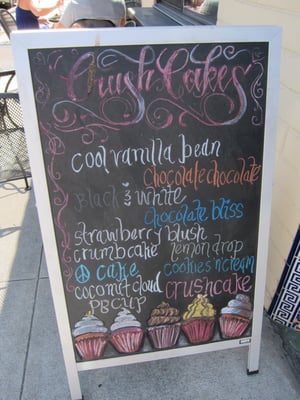 Crush Cakes
cool vanilla bean
chocolate chocolate
Black & white
chocolate bliss
strawberry blush
crumbcake lemon drop
☮ cake cookies 'n cream
coconut cloud crushcake
PB CUP